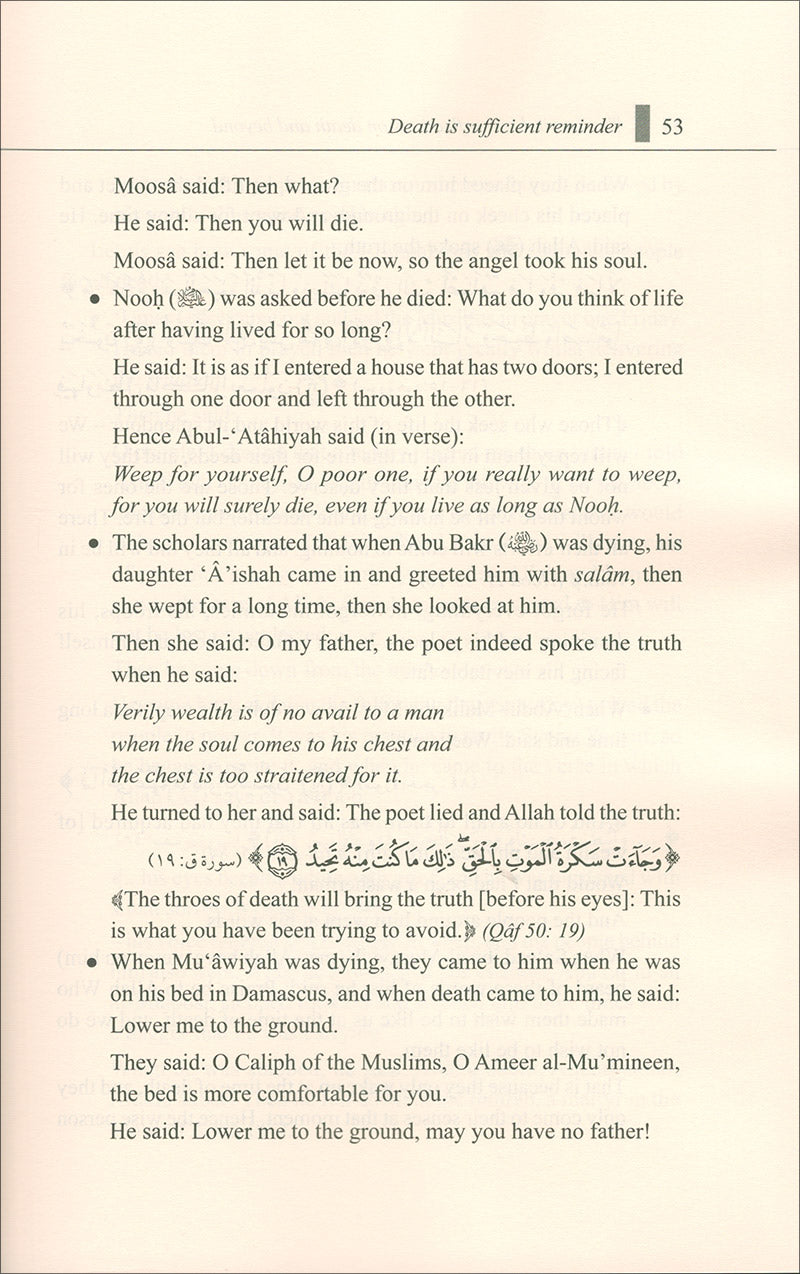 Death is sufficient reminder 53
Moosâ said: Then what?
He said: Then you will die.
Moosâ said: Then let it be now, so the angel took his soul.
• Nooḥ () was asked before he died: What do you think of life
after having lived for so long?
He said: It is as if I entered a house that has two doors; I entered
through one door and left through the other.
Hence Abul-‘Atâhiyah said (in verse):
Weep for yourself, O poor one, if you really want to weep,
for you will surely die, even if you live as long as Nooḥ.
• The scholars narrated that when Abu Bakr () was dying, his
daughter ‘Â’ishah came in and greeted him with salâm, then
she wept for a long time, then she looked at him.
Then she said: O my father, the poet indeed spoke the truth
when he said:
Verily wealth is of no avail to a man
when the soul comes to his chest and
the chest is too straitened for it.
He turned to her and said: The poet lied and Allah told the truth:
﴿وَجَآءَتْ سَكْرَةُ ٱلْمَوْتِ بِٱلْحَقِّ ۖ ذَٰلِكَ مَا كُنتَ مِنْهُ تَحِيدُ ١٩﴾ (سورة ق: ١٩)
﴾The throes of death will bring the truth [before his eyes]: This
is what you have been trying to avoid.﴿ (Qâf 50: 19)
• When Mu‘âwiyah was dying, they came to him when he was
on his bed in Damascus, and when death came to him, he said:
Lower me to the ground.
They said: O Caliph of the Muslims, O Ameer al-Mu’mineen,
the bed is more comfortable for you.
He said: Lower me to the ground, may you have no father!